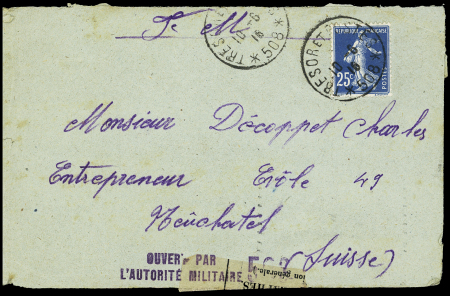 F. M.
TRESOR ET
10 - 6
16
* 508 *
TRESOR ET
10 6
16
* 508 *
REPUBLIQUE FRANÇAISE
25c
POSTES
Monsieur Décoppet Charles
Entrepreneur 49
Neûchatel
(Suisse)
OUVERT PAR
L'AUTORITÉ MILITAIRE
ion générale